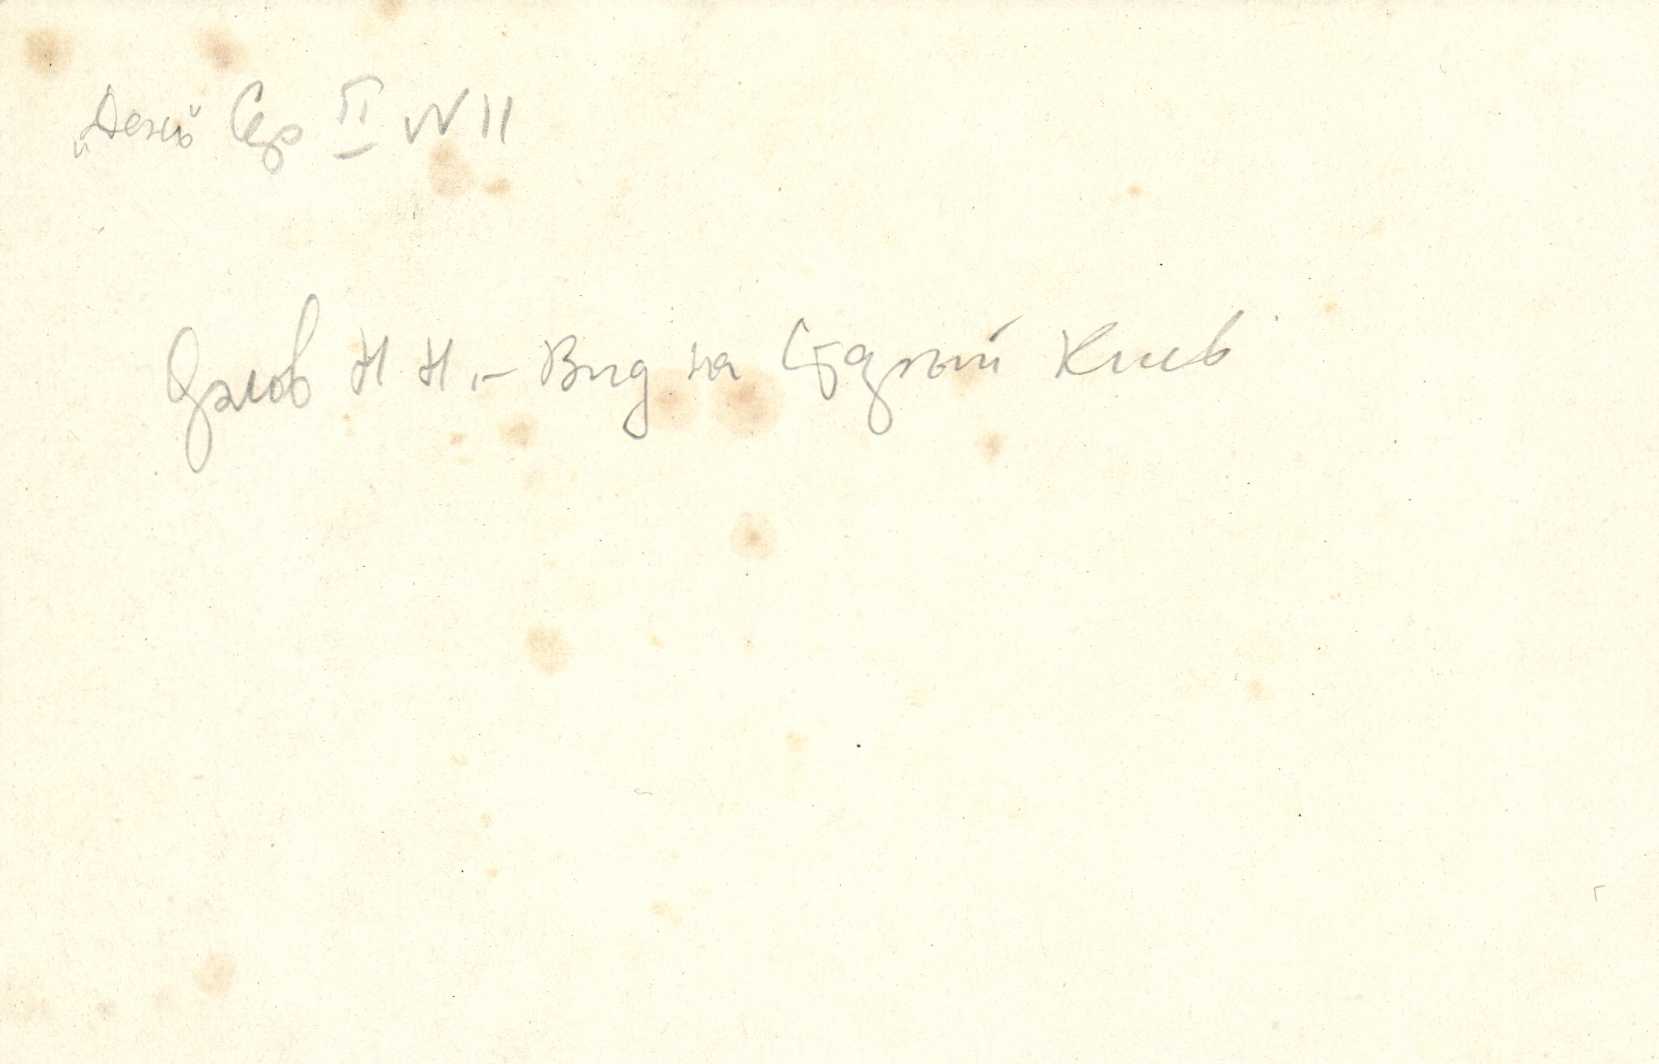 „День" Сер II N 11
Н Н. - Вид на Старый Киев